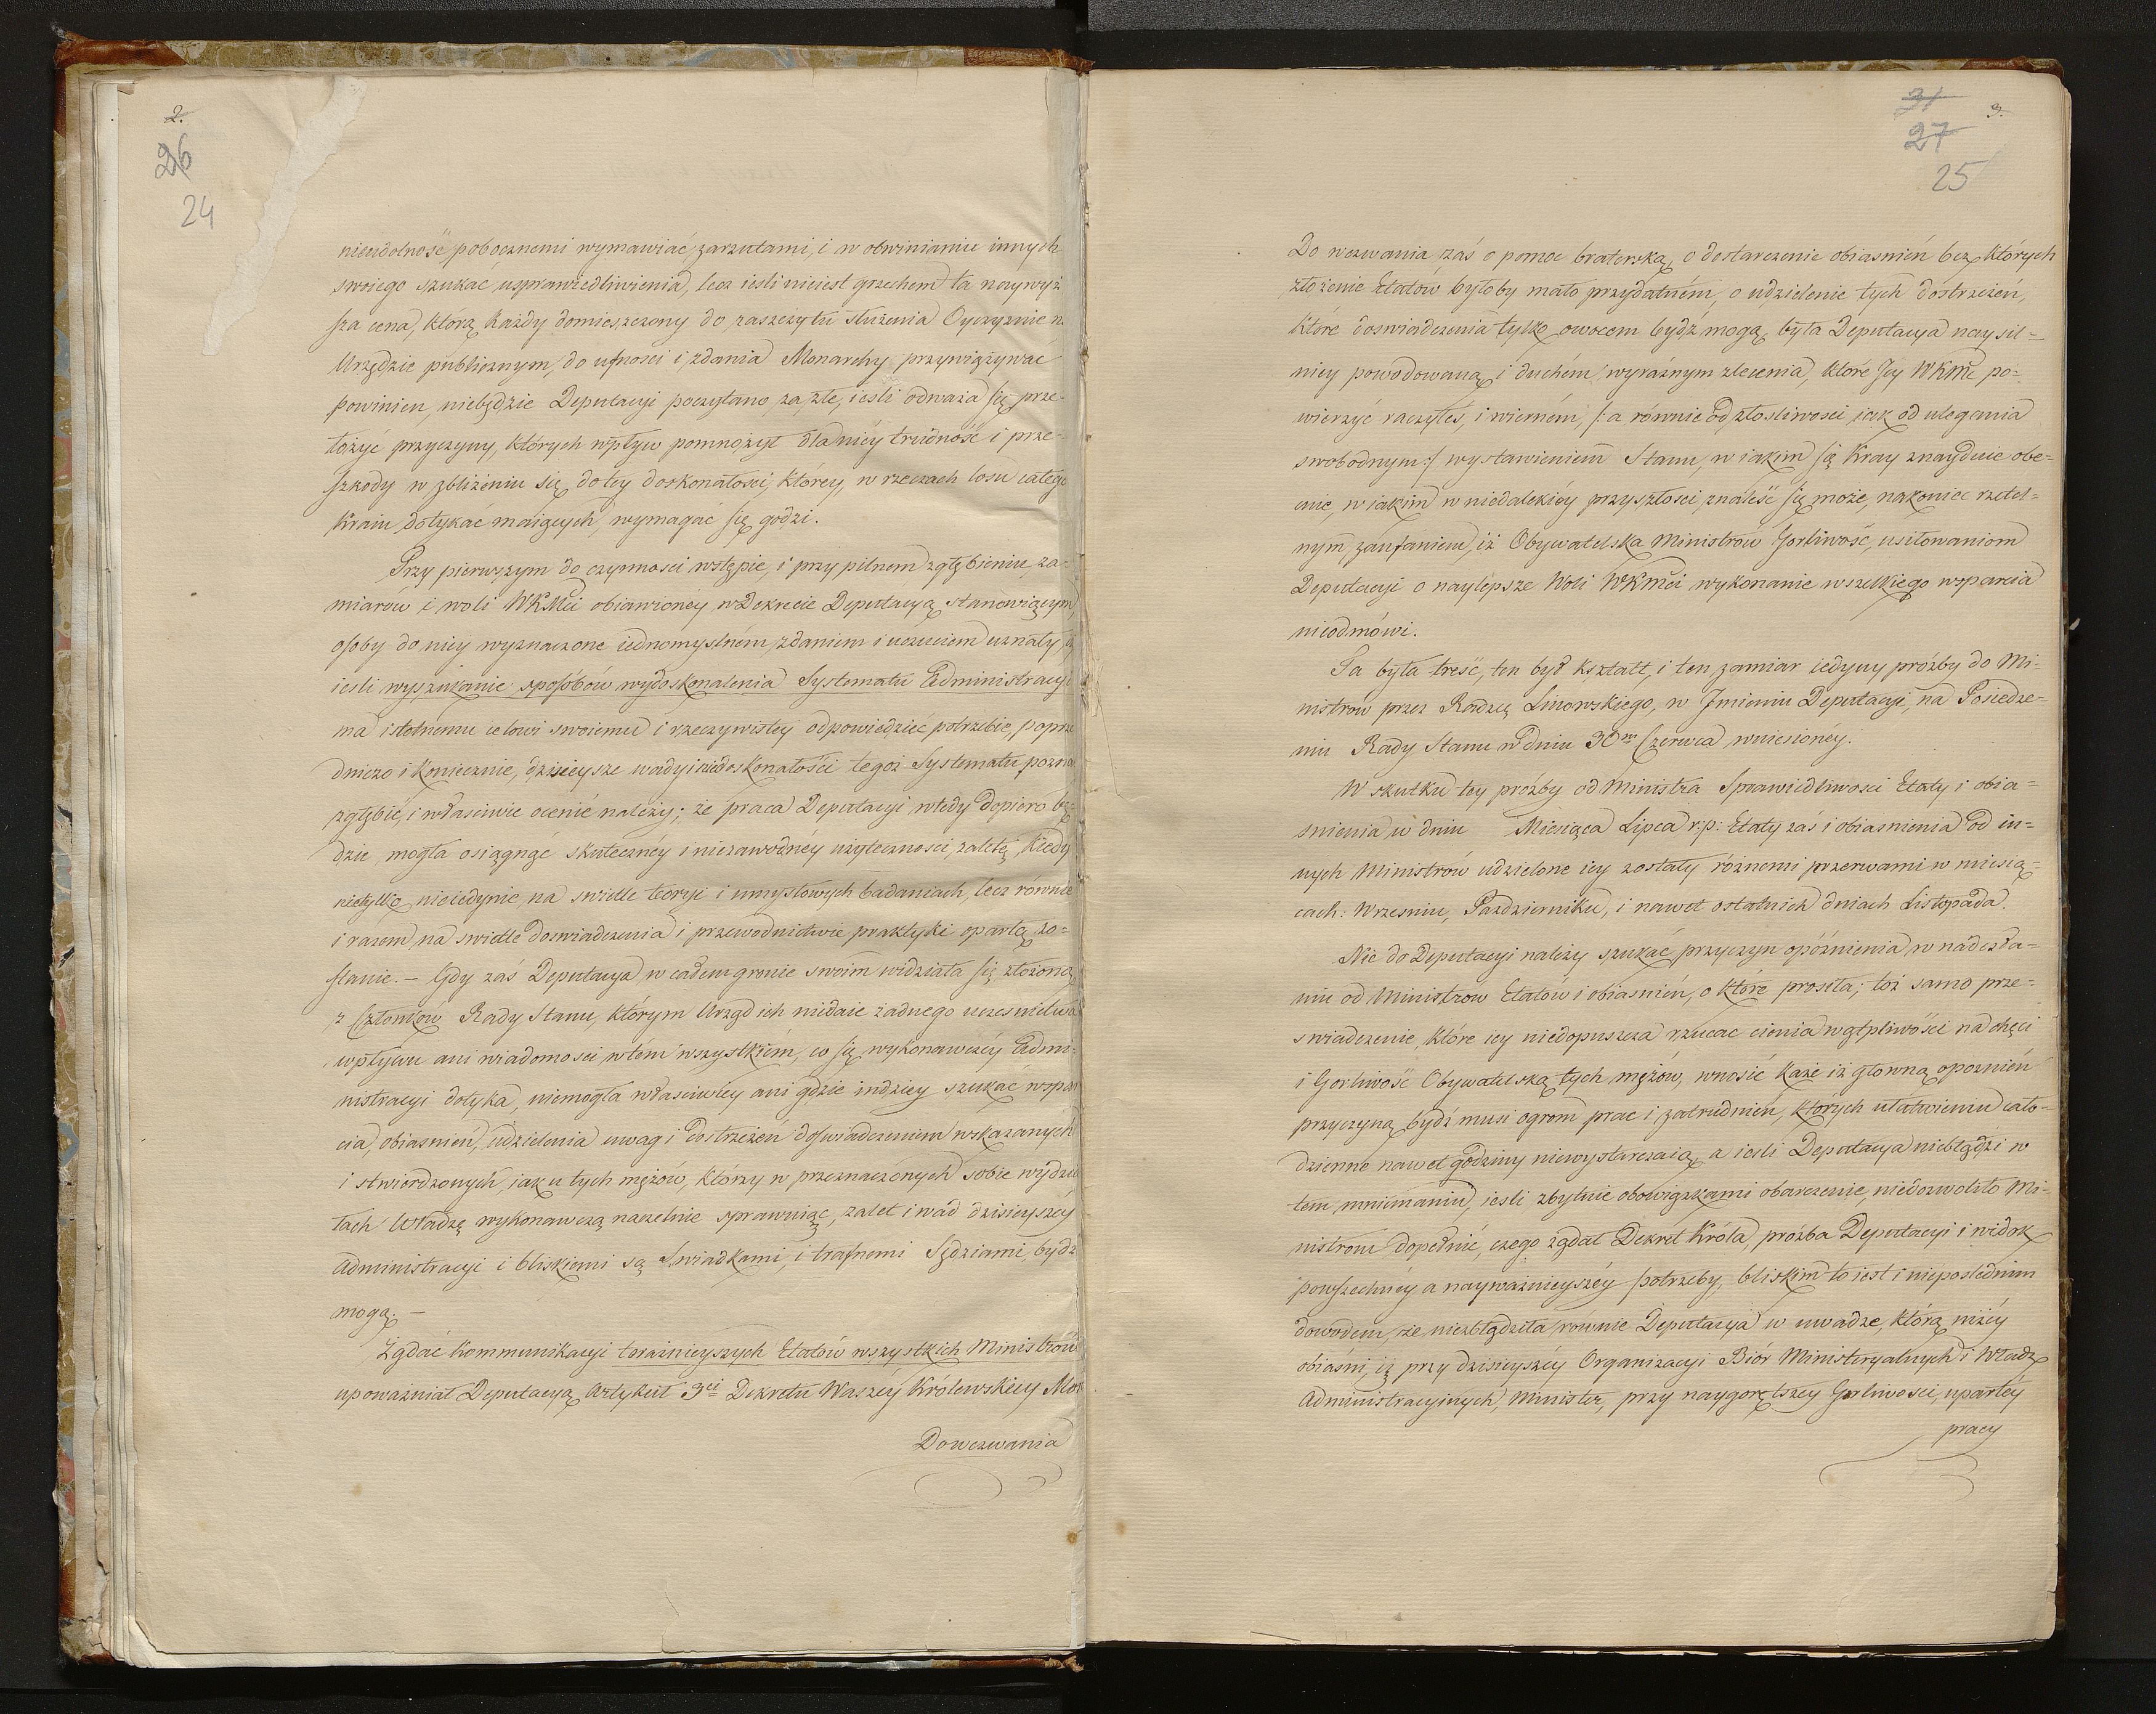 2.
26
24
nieudolność pobocznemi wymawiać zarzutami, i w obwinianiu innych
swoiego szukać usprawiedliwienia, lecz iesli nieiest grzechem ta naywyż
sza cena, którą każdy domieszczony do zaszczytu służenia Oyczyznie n
Urzędzie publicznym, do ufności i zdania Monarchy przywiązywać
powinien, niebędzie Deputacyi poczytano za złe, iesli odważa się prze-
łożyć przyczyny, których wpływ pomnożył dla niéy trudność i prze-
szkody w zbliżeniu się do téy doskonałości, któréy, w rzeczach losu całego
Kraiu dotykać maiących, wymagać się godzi.
Przy pierwszym do czynności wstępie, i przy pilnem zgłębieniu za-
miarów i woli WKMci obiawionéy w Dekrecie Deputacyą stanowiącym,
osoby do niey wyznaczone iednomyślném zdaniem i uczuciem uznały
iesli wyszukanie sposobów wydoskonalenia Systematu Administracyi
ma istotnemu celowi swoiemu i rzeczywistey odpowiedzieć potrzebie, poprze
dniczo i koniecznie, dzisieysze wady i niedoskonałości tegoż Systematu pozna
zgłębić, i właściwie ocenić należy; że praca Deputacyi wtedy dopiero bę-
dzie mogła osiągnąć skutecznéy i niezawodnéy użyteczności zaletę, kiedy
nietylko nieiedynie na świetle teoryi i umysłowych badaniach, lecz równie
i razem na świetle doswiadczenia i przewodnictwie praktyki opartą zo-
stanie. — Gdy zaś Deputacya w całem gronie swoim widziała się złożoną
z Członków Rady Stanu, którym Urząd ich niedaie żadnego uczesnictwa
wpływu ani wiadomosci w tém wszystkiém, co się wykonawczéy Admi-
nistracyi dotyka, niemogła właściwiey ani gdzie indziey szukać wspar
cia, obiasnień, udzielenia uwag i dostrzeżeń doświadczeniem wskazanych
i stwierdzonych, iak u tych mężów, którzy w przeznaczonych sobie wydzia
łach Władzę wykonawczą naczelnie sprawuiąc, zalet i wad dzisieyszéy
Administracyi i bliskiemi są Swiadkami, i trafnemi Sędziami bydź
mogą. —
Żądać kommunikacyi teraźnieyszych Etatów wszystkich Ministrów
upoważniał Deputacyą Artykuł 3ci Dekretu Waszéy Królewskiey Mo
Do wezwania
31
27
25
3.
Do wezwania zaś o pomoc braterską, o dostarczenie obiasnień bez których
złożenie Etatów byłoby mało przydatném, o udzielenie tych dostrzeżeń,
które doswiadczenia tylko owocem bydź mogą, była Deputacya naysil-
niey powodowaną i duchém wyraźnym zlecenia, które Jey WKMć po-
wierzyć raczyłeś, i wierném /: a równie od złosliwosci iak od ulegania
swobodnym :/ wystawieniem Stanu, w iakim się Kray znayduie obe-
cnie, w iakim w niedalekiéy przyszłosci znaleść się może, nakoniec rzetel-
nym, zaufaniem, iż Obywatelska Ministrów Gorliwość, usiłowaniom
Deputacyi o naylépsze Woli WKMci wykonanie wszelkiego wsparcia
nieodmówi.
Ta była treść, ten był kształt, i ten zamiar iedyny próżby do Mi-
nistrów przez Radzcę Linowskiego, w Imieniu Deputacyi, na Posiedze-
niu Rady Stanu w dniu 30m Czerwca wniesionéy.
W skutku téy próżby od Ministra Sprawiedliwosci Etaty i obia-
snienia w dniu Miesiąca Lipca r: p: Etaty zaś i obiasnienia od in-
nych Ministrów udzielone iey zostały różnemi przerwami w miesią-
cach: Wrzesniu, Pazdzierniku, i nawet ostatnich dniach Listopada.
Nie do Deputacyi należy szukać przyczyn opóźnienia w nadesła-
niu od Ministrow Etatów i obiasnień, o które prosiła; toż samo prze-
swiadczenie, które iey niedopuszcza rzucac cienia wątpliwości na chęci
i Gorliwość Obywatelską tych mężów, wnosić każe iż głowną opoznień
przyczyną bydź musi ogrom prac i zatrudnień, których ułatwieniu cało-
dzienne nawet godziny niewystarczaią, a iesli Deputacya niebłądzi w
tem mniemaniu, iesli zbytnie obowiązkami obarczenie, niedozwoliło Mi-
nistrom dopełnić, czego żądał Dekret Króla, próżba Deputacyi i widok
powszechnéy a nayważnieyszéy potrzeby, bliskim to iest i nieposlednim
dowodem, że niezbłądziła równie Deputacya w uwadze, którą niżéy
obiaśni, iż przy dzisieyszéy Organizacyi Biór Ministeryalnych i Władz
Administracyinych, Minister, przy naygorętszey Gorliwosci, upartéy
pracy